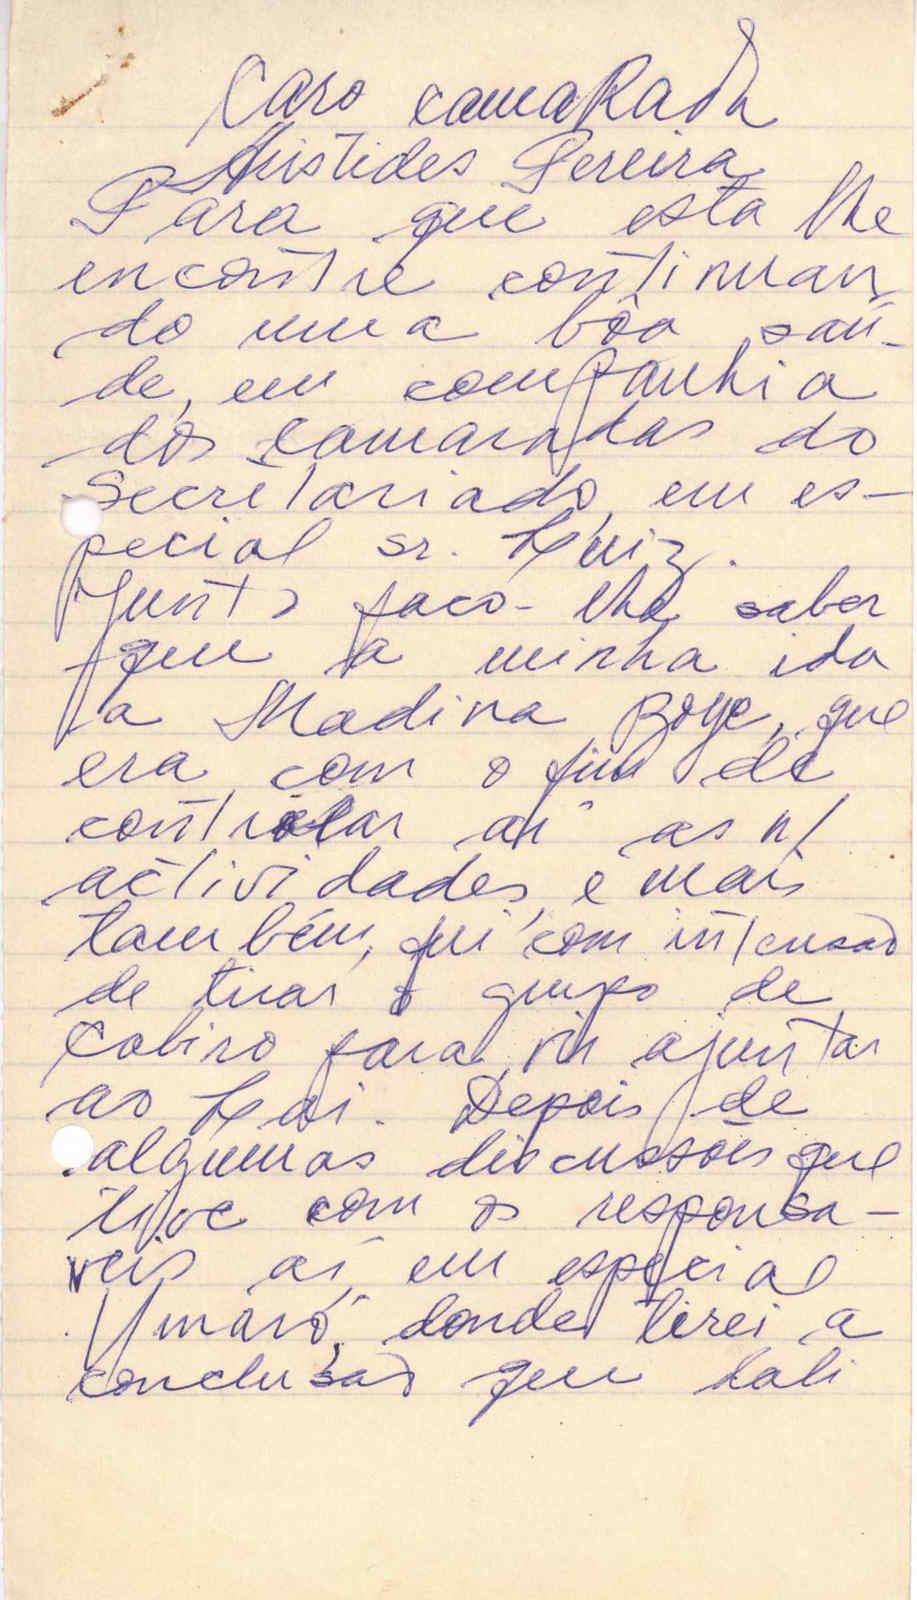 Caro camaRada
Aristides Pereira
Para que esta lhe
encontre continuan
do uma bôa saú-
de, em companhia
dos camaradas do
Secretariado, em es-
pecial sr. Luiz.
Junto faço-lhe saber
que a minha ida
a Madina Boye, que
era com o fim de
controlar aí as n/
actividades, e mais
também, fui com intensão
de tirar o grupo de
Cobiro para vir ajuntar
ao Lai. Depois de
algumas discussões que
tive com os responsa-
veis aí, em especial
Umaró, donde tirei a
conclusão que dali